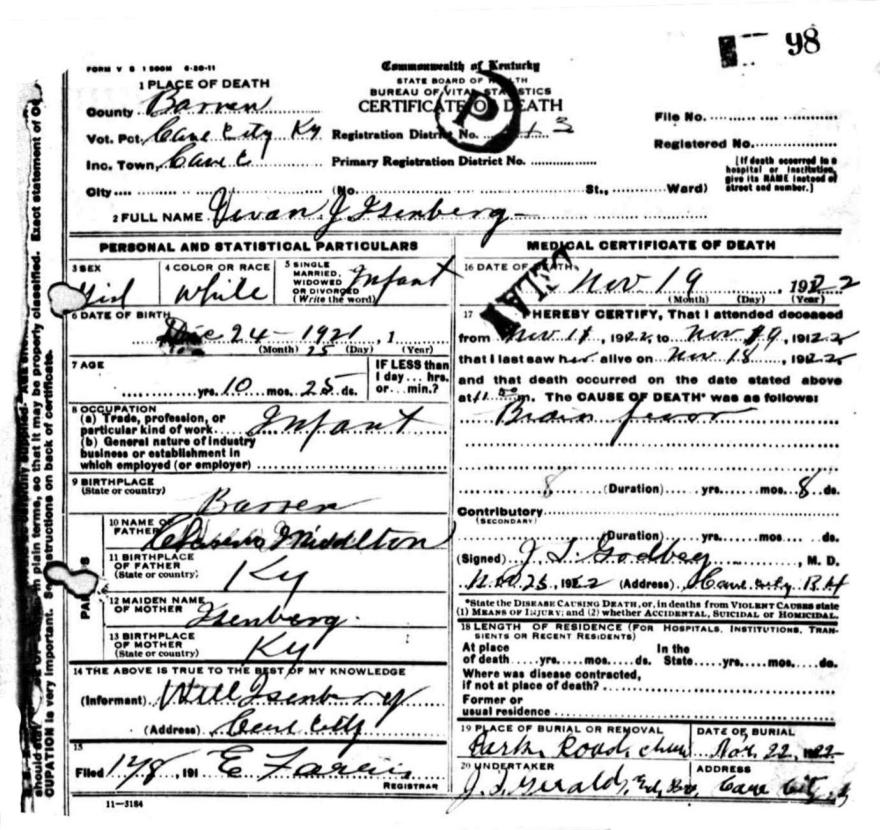 98
FORM V S 1 500M 6-20-11
Commonwealth of Kentucky
STATE BOARD OF HEALTH
BUREAU OF VITAL STATISTICS
CERTIFICATE OF DEATH
P
1 PLACE OF DEATH
County Barren
Vot. Pct. Cave City Ky Registration District No. 3
Inc. Town, Cave C Primary Registration District No.
City (No. St., Ward)
File No.
Registered No.
[If death occurred in a hospital or institution, give its NAME instead of street and number.]
2 FULL NAME J Isenberg
PERSONAL AND STATISTICAL PARTICULARS
3 SEX Girl
4 COLOR OR RACE White
5 SINGLE MARRIED, WIDOWED OR DIVORCED (Write the word) Infant
6 DATE OF BIRTH
Dec 24 - 1921, 1
(Month) 25 (Day) (Year)
7 AGE
yrs. 10 mos. 25 ds.
IF LESS than 1 day... hrs. or... min.?
8 OCCUPATION
(a) Trade, profession, or particular kind of work Infant
(b) General nature of industry business or establishment in which employed (or employer)
9 BIRTHPLACE
(State or country)
Barren
PARENTS
10 NAME OF FATHER Middleton
11 BIRTHPLACE OF FATHER (State or country) Ky
12 MAIDEN NAME OF MOTHER Isenberg
13 BIRTHPLACE OF MOTHER (State or country) Ky
14 THE ABOVE IS TRUE TO THE BEST OF MY KNOWLEDGE
(Informant) Will Isenberg
(Address) Cave City
15
Filed 191 E
REGISTRAR
11-3184
MEDICAL CERTIFICATE OF DEATH
16 DATE OF DEATH
Nov 19, 1922
(Month) (Day) (Year)
17 I HEREBY CERTIFY, That I attended deceased
from Nov 1, 1922, to Nov 19, 1922
that I last saw her alive on Nov 18, 1922
and that death occurred on the date stated above
at 11 m. The CAUSE OF DEATH* was as follows:
Brain fever
8 (Duration) yrs. mos. 8 ds.
Contributory
(SECONDARY)
(Duration) yrs. mos. ds.
(Signed) Godbey, M. D.
Nov 25, 1922 (Address) Cave City
*State the DISEASE CAUSING DEATH, or, in deaths from VIOLENT CAUSES state (1) MEANS OF INJURY; and (2) whether ACCIDENTAL, SUICIDAL or HOMICIDAL.
18 LENGTH OF RESIDENCE (FOR HOSPITALS, INSTITUTIONS, TRANSIENTS OR RECENT RESIDENTS)
At place of death yrs. mos. ds. In the State yrs. mos. ds.
Where was disease contracted, if not at place of death?
Former or usual residence
19 PLACE OF BURIAL OR REMOVAL
DATE OF BURIAL
Road, Nov. 22, 1922
20 UNDERTAKER
ADDRESS
Cave City
in plain terms, so that it may be properly classified. Exact statement of
CUPATION is very important. See instructions on back of certificate.